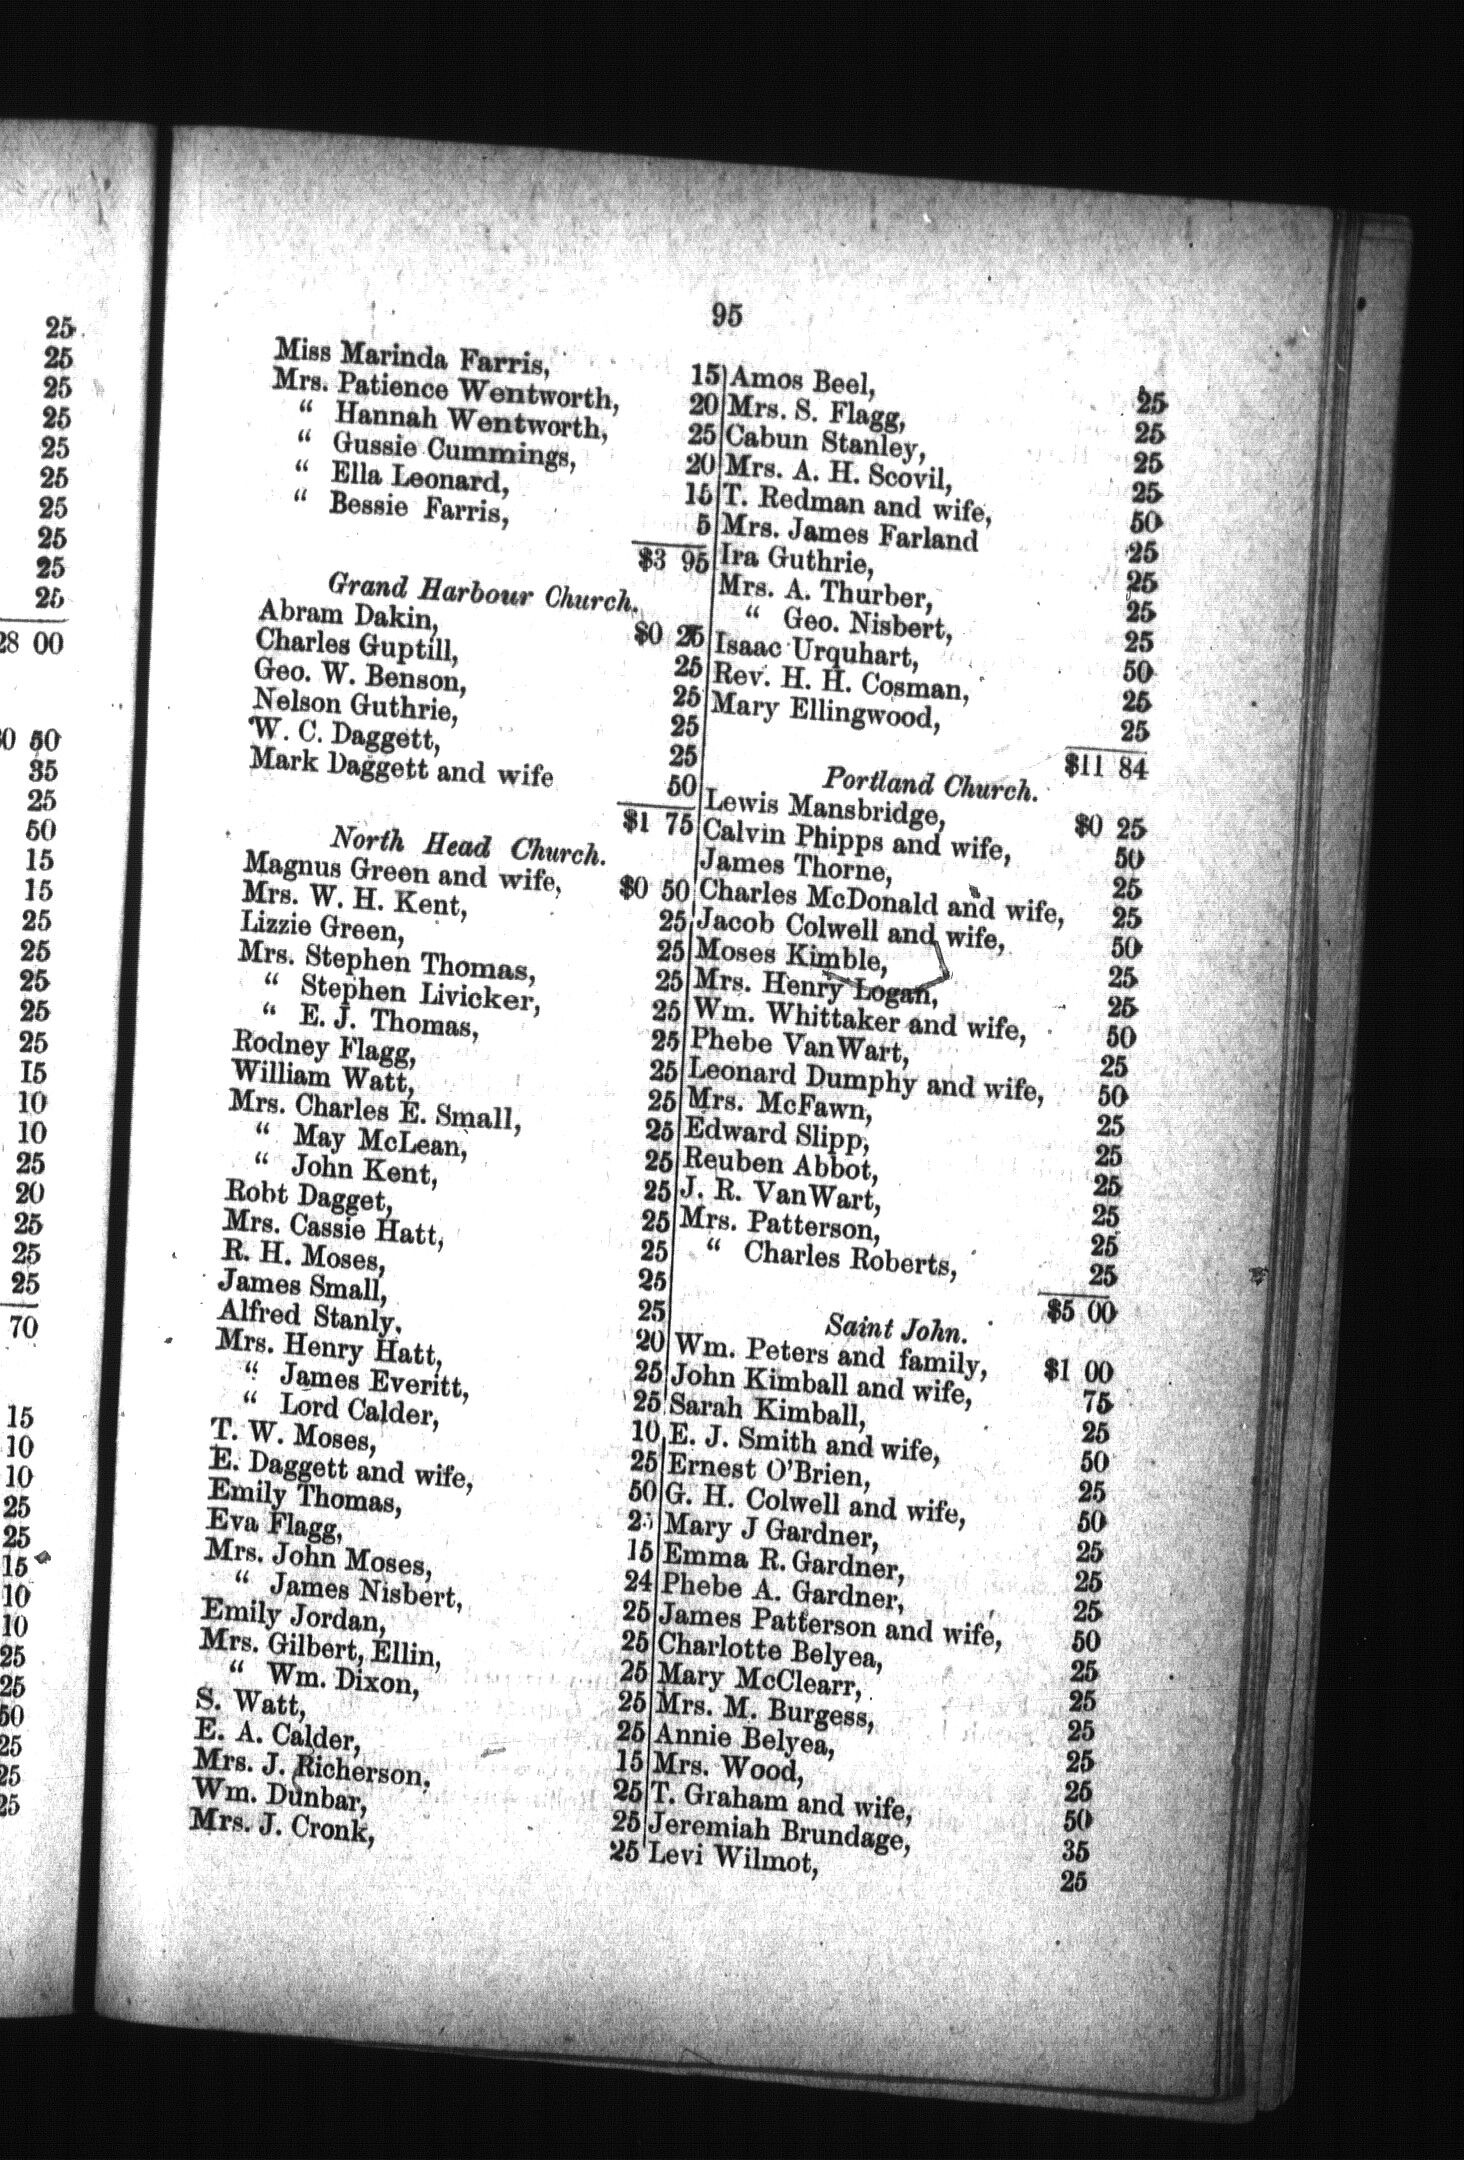 25
25
25
25
25
25
25
25
25
25
28 00
50
35
25
50
15
15
25
25
25
25
25
15
10
10
25
20
25
25
25
70
15
10
10
25
25
15
10
10
25
25
50
25
25
25
95
Miss Marinda Farris, 15
Mrs. Patience Wentworth, 20
“ Hannah Wentworth, 25
“ Gussie Cummings, 20
“ Ella Leonard, 15
“ Bessie Farris, 5
$3 95
Grand Harbour Church.
Abram Dakin, $0 25
Charles Guptill, 25
Geo. W. Benson, 25
Nelson Guthrie, 25
W. C. Daggett, 25
Mark Daggett and wife 50
$1 75
North Head Church.
Magnus Green and wife, $0 50
Mrs. W. H. Kent, 25
Lizzie Green, 25
Mrs. Stephen Thomas, 25
“ Stephen Livicker, 25
“ E. J. Thomas, 25
Rodney Flagg, 25
William Watt, 25
Mrs. Charles E. Small, 25
“ May McLean, 25
“ John Kent, 25
Robt Dagget, 25
Mrs. Cassie Hatt, 25
R. H. Moses, 25
James Small, 25
Alfred Stanly. 20
Mrs. Henry Hatt, 25
“ James Everitt, 25
“ Lord Calder, 10
T. W. Moses, 25
E. Daggett and wife, 50
Emily Thomas, 25
Eva Flagg, 15
Mrs. John Moses, 24
“ James Nisbert, 25
Emily Jordan, 25
Mrs. Gilbert, Ellin, 25
“ Wm. Dixon, 25
S. Watt, 25
E. A. Calder, 15
Mrs. J. Richerson. 25
Wm. Dunbar, 25
Mrs. J. Cronk, 25
Amos Beel, 25
Mrs. S. Flagg, 25
Cabun Stanley, 25
Mrs. A. H. Scovil, 25
T. Redman and wife, 50
Mrs. James Farland 25
Ira Guthrie, 25
Mrs. A. Thurber, 25
“ Geo. Nisbert, 25
Isaac Urquhart, 50
Rev. H. H. Cosman, 25
Mary Ellingwood, 25
$11 84
Portland Church.
Lewis Mansbridge, $0 25
Calvin Phipps and wife, 50
James Thorne, 25
Charles McDonald and wife, 25
Jacob Colwell and wife, 50
Moses Kimble, 25
Mrs. Henry Logan, 25
Wm. Whittaker and wife, 50
Phebe VanWart, 25
Leonard Dumphy and wife, 50
Mrs. McFawn, 25
Edward Slipp, 25
Reuben Abbot, 25
J. R. VanWart, 25
Mrs. Patterson, 25
“ Charles Roberts, 25
$5 00
Saint John.
Wm. Peters and family, $1 00
John Kimball and wife, 75
Sarah Kimball, 25
E. J. Smith and wife, 50
Ernest O’Brien, 25
G. H. Colwell and wife, 50
Mary J Gardner, 25
Emma R. Gardner, 25
Phebe A. Gardner, 25
James Patterson and wife, 50
Charlotte Belyea, 25
Mary McClearr, 25
Mrs. M. Burgess, 25
Annie Belyea, 25
Mrs. Wood, 25
T. Graham and wife, 50
Jeremiah Brundage, 35
Levi Wilmot, 25